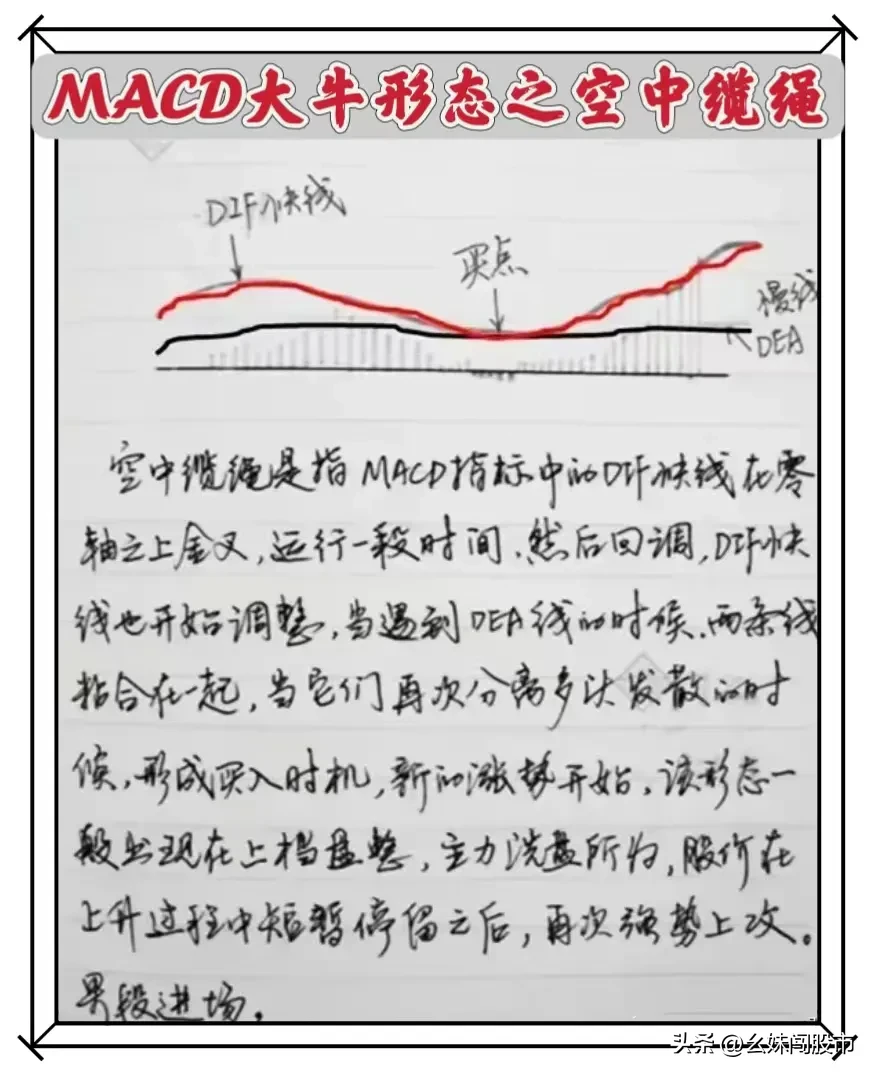 MACD大牛形态之空中缆绳
DIF快线
买点
慢线
DEA
空中缆绳是指MACD指标中的DIF快线在零
轴之上金叉,运行一段时间,然后回调,DIF快
线也开始调整,当遇到DEA线的时候,两条线
粘合在一起,当它们再次分离多头发散的时
候,形成买入时机,新的涨势开始,该形态一
般出现在上档盘整,主力洗盘所为,股价在
上升过程中短暂停留之后,再次强势上攻。
果段进场。
头条 @幺妹闯股市